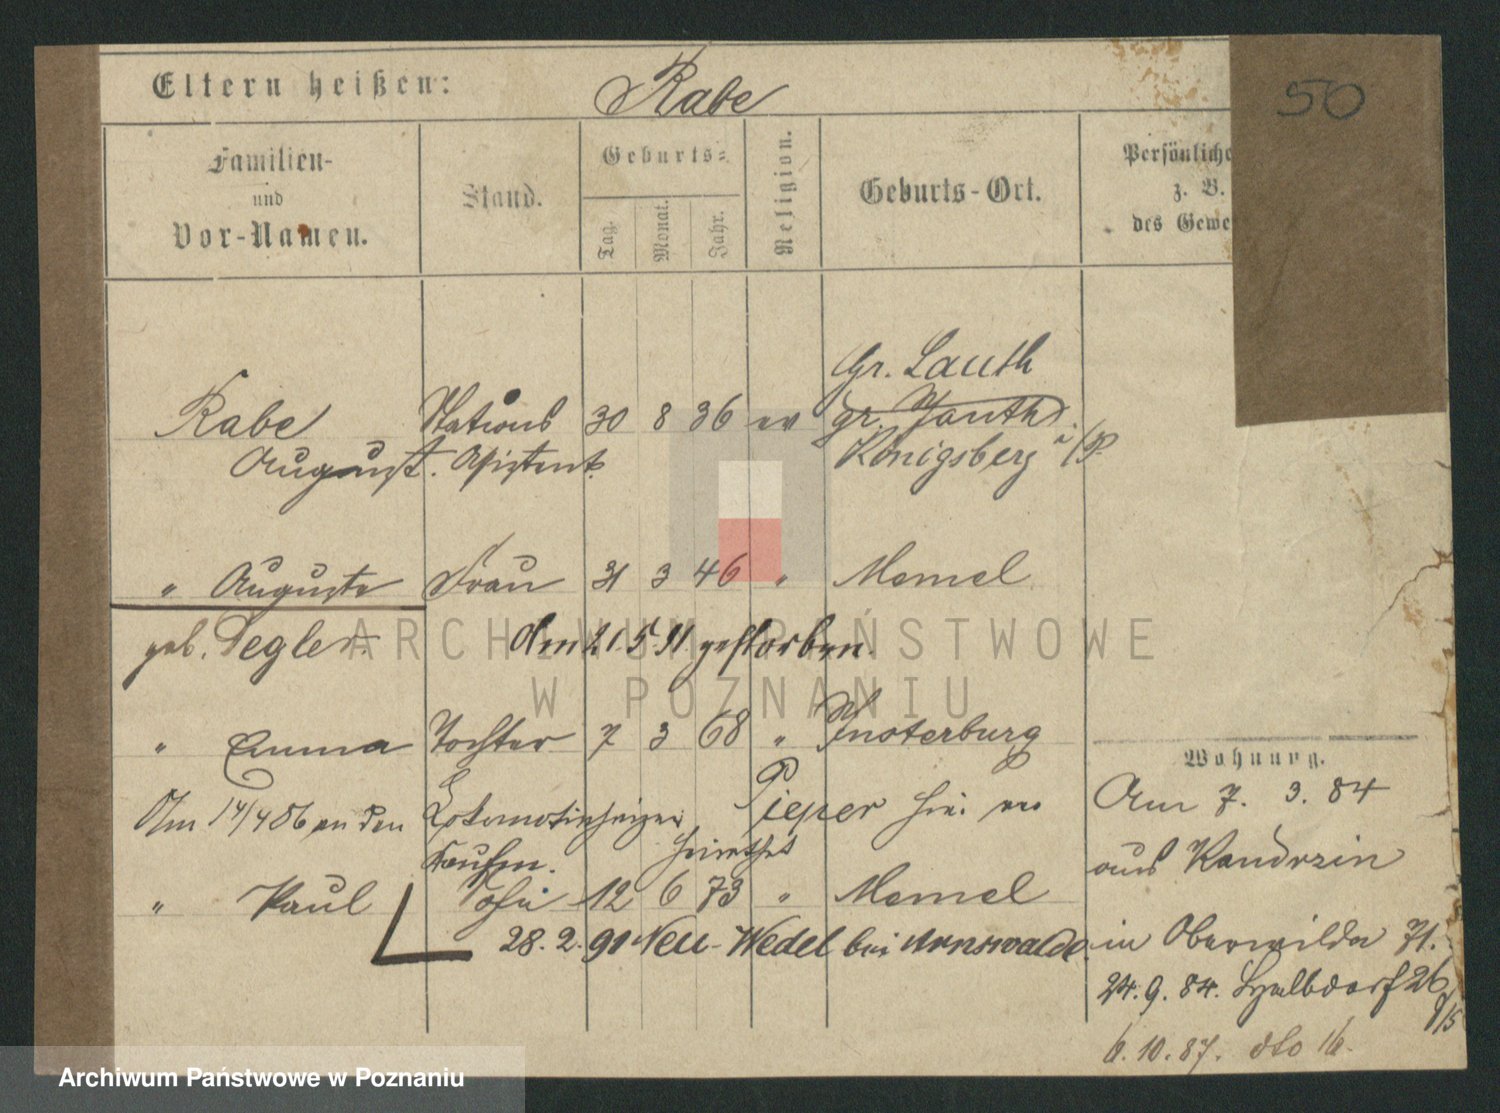 Eltern heißen: Rabe
50
Familien-
und
Vor-Namen.
Stand.
Geburts-
Tag.
Monat.
Jahr.
Religion.
Geburts-Ort.
Persönliche
z. B.
des Gewe
Gr. Lauth
Rabe Stations 30 8 36 ev gr. Jauth
August. Assistent. Königsberg i/P.
" Auguste Frau 31 3 46 " Memel
geb. Degler Am 21.5.91 gestorben.
" Emma Tochter 7 3 68 " Insterburg
Wohnung.
Am 14/4 86 an den Lokomotivheizer Pieper hier ver
heirathet
Am 7. 3. 84
aus Kandrzin
" Paul Sohn 12 6 73 " Memel
28. 2. 91 Neu-Wedel bei Arnswalde.
in Oberwilda 71.
24. 9. 84. Halbdorf 26
6. 10. 87. dto 16.
ARCHIWUM PAŃSTWOWE
W POZNANIU
Archiwum Państwowe w Poznaniu